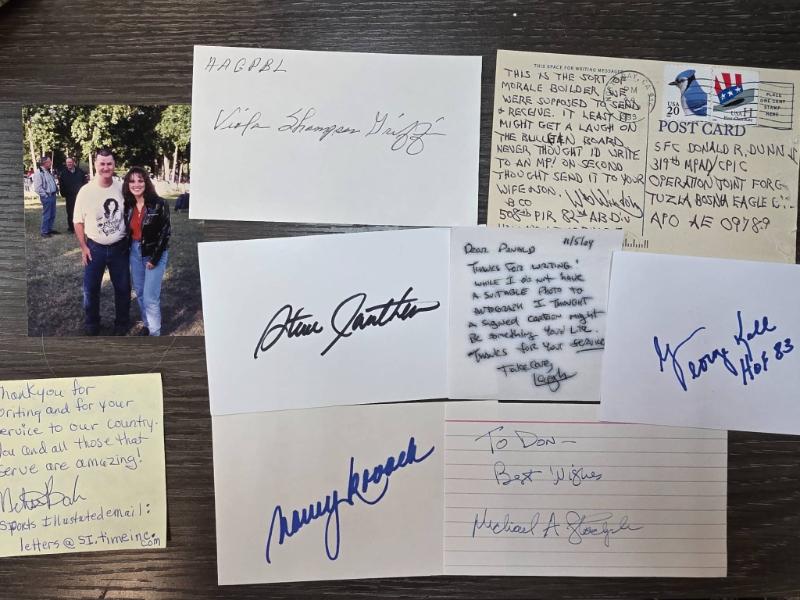 AAGPBL
Viola Thompson Griffin
THIS SPACE FOR WRITING MESSAGES
THIS IS THE SORT OF
MORALE BOILDER WE
WERE SUPPOSED TO SEND
& RECEIVE. IT LEAST IT
MIGHT GET A LAUGH ON
THE BULLETIN BOARD.
NEVER THOUGHT I'D WRITE
TO AN MP! ON SECOND
THOUGHT SEND IT TO YOUR
WIFE
B CO
508th PIR 82nd ABDIV
USA
20
USA
PLACE
ONE CENT
STAMP
HERE
POST CARD
SFC DONALD R. DUNN
319th MPAD/CPIC
OPERATION JOINT FORG
TUZLA BOSNIA EAGLE
APO AE 09789
Steve
Dear Donald 11/5/04
Thanks for writing!
While I do not have
a suitable photo to
autograph I thought
a signed cartoon might
be something you'd like.
Thanks for your service
Take care,
Leigh
George Kell
HOF 83
Thankyou for
writing and for your
service to our country.
You and all those that
serve are amazing!
Sports Illustrated email:
letters@SI.timeinc.com
Nancy Kovack
To Don-
Best Wishes
Michael A